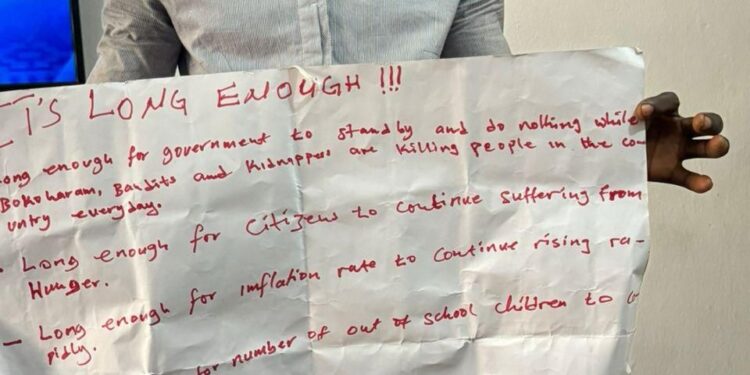 IT'S LONG ENOUGH !!!
Long enough for government to standby and do nothing while
Bokoharam, Bandits and Kidnappers are killing people in the co-
untry everyday.
- Long enough for Citizens to continue suffering from
Hunger.
- Long enough for inflation rate to continue rising ra-
pidly.
for number of out of school children to